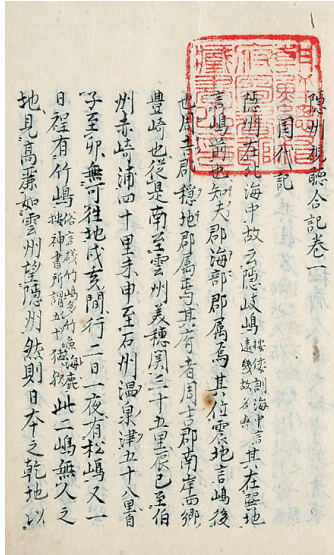 隠州視聴合記巻一
國代記
隠州在北海中故云隠岐嶋 按倭訓海中言遠幾故名歟 其在巽地
言嶋前也知夫郡海部郡属焉其位震地言嶋後
也周吉郡穏地郡属焉其府者周吉郡南岸西郷
豊崎也従是南至雲州美穂関三十五里辰巳至伯
州赤碕浦四十里未申至石州温泉津五十八里自
子至卯無可往地戍亥間行二日一夜有松嶋又一
日程有竹嶋 俗言磯竹嶋多竹魚海鹿 按神書所謂五十猛歟 此二嶋無人之
地見高麗如雲州望隠州然則日本之乾地以